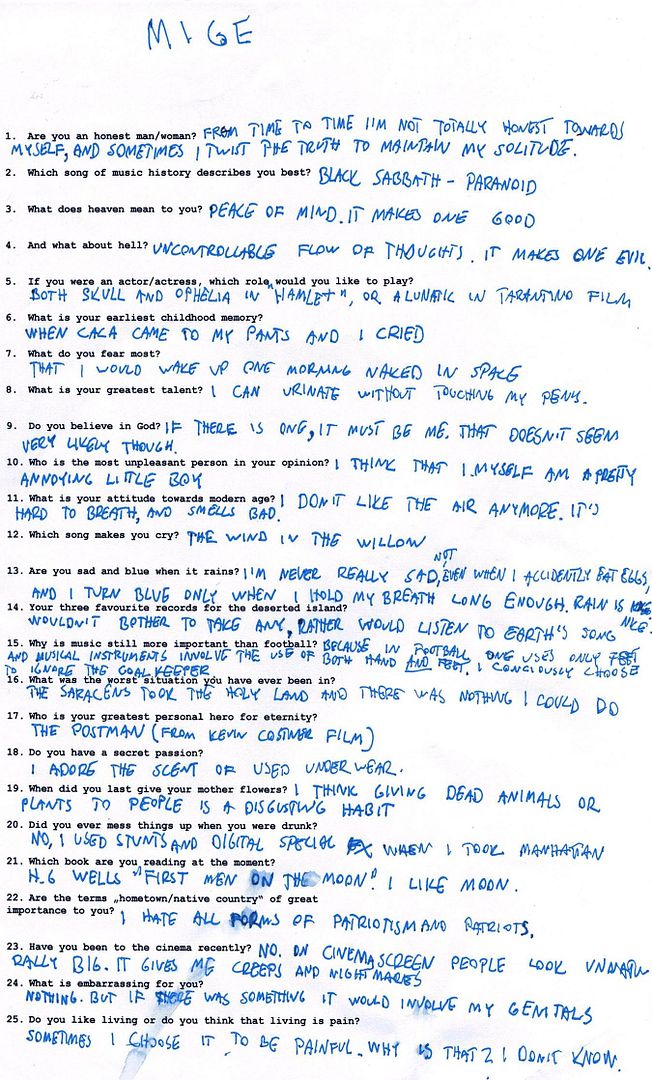 MIGE
1. Are you an honest man/woman? FROM TIME TO TIME I'M NOT TOTALLY HONEST TOWARDS
MYSELF, AND SOMETIMES I TWIST THE TRUTH TO MAINTAIN MY SOLITUDE.
2. Which song of music history describes you best? BLACK SABBATH - PARANOID
3. What does heaven mean to you? PEACE OF MIND. IT MAKES ONE GOOD
4. And what about hell? UNCONTROLLABLE FLOW OF THOUGHTS. IT MAKES ONE EVIL.
5. If you were an actor/actress, which role would you like to play?
BOTH SKULL AND OPHELIA IN "HAMLET", OR A LUNATIC IN TARANTINO FILM
6. What is your earliest childhood memory?
WHEN CACA CAME TO MY PANTS AND I CRIED
7. What do you fear most?
THAT I WOULD WAKE UP ONE MORNING NAKED IN SPACE
8. What is your greatest talent? I CAN URINATE WITHOUT TOUCHING MY PENIS.
9. Do you believe in God? IF THERE IS ONE, IT MUST BE ME. THAT DOESN'T SEEM
VERY LIKELY THOUGH.
10. Who is the most unpleasant person in your opinion? I THINK THAT I MYSELF AM A PRETTY
ANNOYING LITTLE BOY
11. What is your attitude towards modern age? I DON'T LIKE THE AIR ANYMORE. IT'S
HARD TO BREATH, AND SMELLS BAD.
12. Which song makes you cry? THE WIND IN THE WILLOW
13. Are you sad and blue when it rains? I'M NEVER REALLY SAD, NOT EVEN WHEN I ACCIDENTLY EAT EGGS,
AND I TURN BLUE ONLY WHEN I HOLD MY BREATH LONG ENOUGH. RAIN IS NICE.
14. Your three favourite records for the deserted island?
WOULDN'T BOTHER TO TAKE ANY, RATHER WOULD LISTEN TO EARTH'S SONG
15. Why is music still more important than football? BECAUSE IN FOOTBALL ONE USES ONLY FEET
AND MUSICAL INSTRUMENTS INVOLVE THE USE OF BOTH HAND AND FEET. I CONCIOUSLY CHOOSE
TO IGNORE THE GOAL KEEPER
16. What was the worst situation you have ever been in?
THE SARACENS TOOK THE HOLY LAND AND THERE WAS NOTHING I COULD DO
17. Who is your greatest personal hero for eternity?
THE POSTMAN (FROM KEVIN COSTNER FILM)
18. Do you have a secret passion?
I ADORE THE SCENT OF USED UNDERWEAR.
19. When did you last give your mother flowers? I THINK GIVING DEAD ANIMALS OR
PLANTS TO PEOPLE IS A DISGUSTING HABIT
20. Did you ever mess things up when you were drunk?
NO, I USED STUNTS AND DIGITAL SPECIAL FX WHEN I TOOK MANHATTAN
21. Which book are you reading at the moment?
H.G WELLS "FIRST MEN ON THE MOON". I LIKE MOON.
22. Are the terms „hometown/native country" of great
importance to you? I HATE ALL FORMS OF PATRIOTISM AND PATRIOTS.
23. Have you been to the cinema recently? NO. ON CINEMA SCREEN PEOPLE LOOK
RALLY BIG. IT GIVES ME CREEPS AND NIGHTMARES
24. What is embarrassing for you?
NOTHING. BUT IF THERE WAS SOMETHING IT WOULD INVOLVE MY GENITALS
25. Do you like living or do you think that living is pain?
SOMETIMES I CHOOSE IT TO BE PAINFUL. WHY IS THAT? I DON'T KNOW.